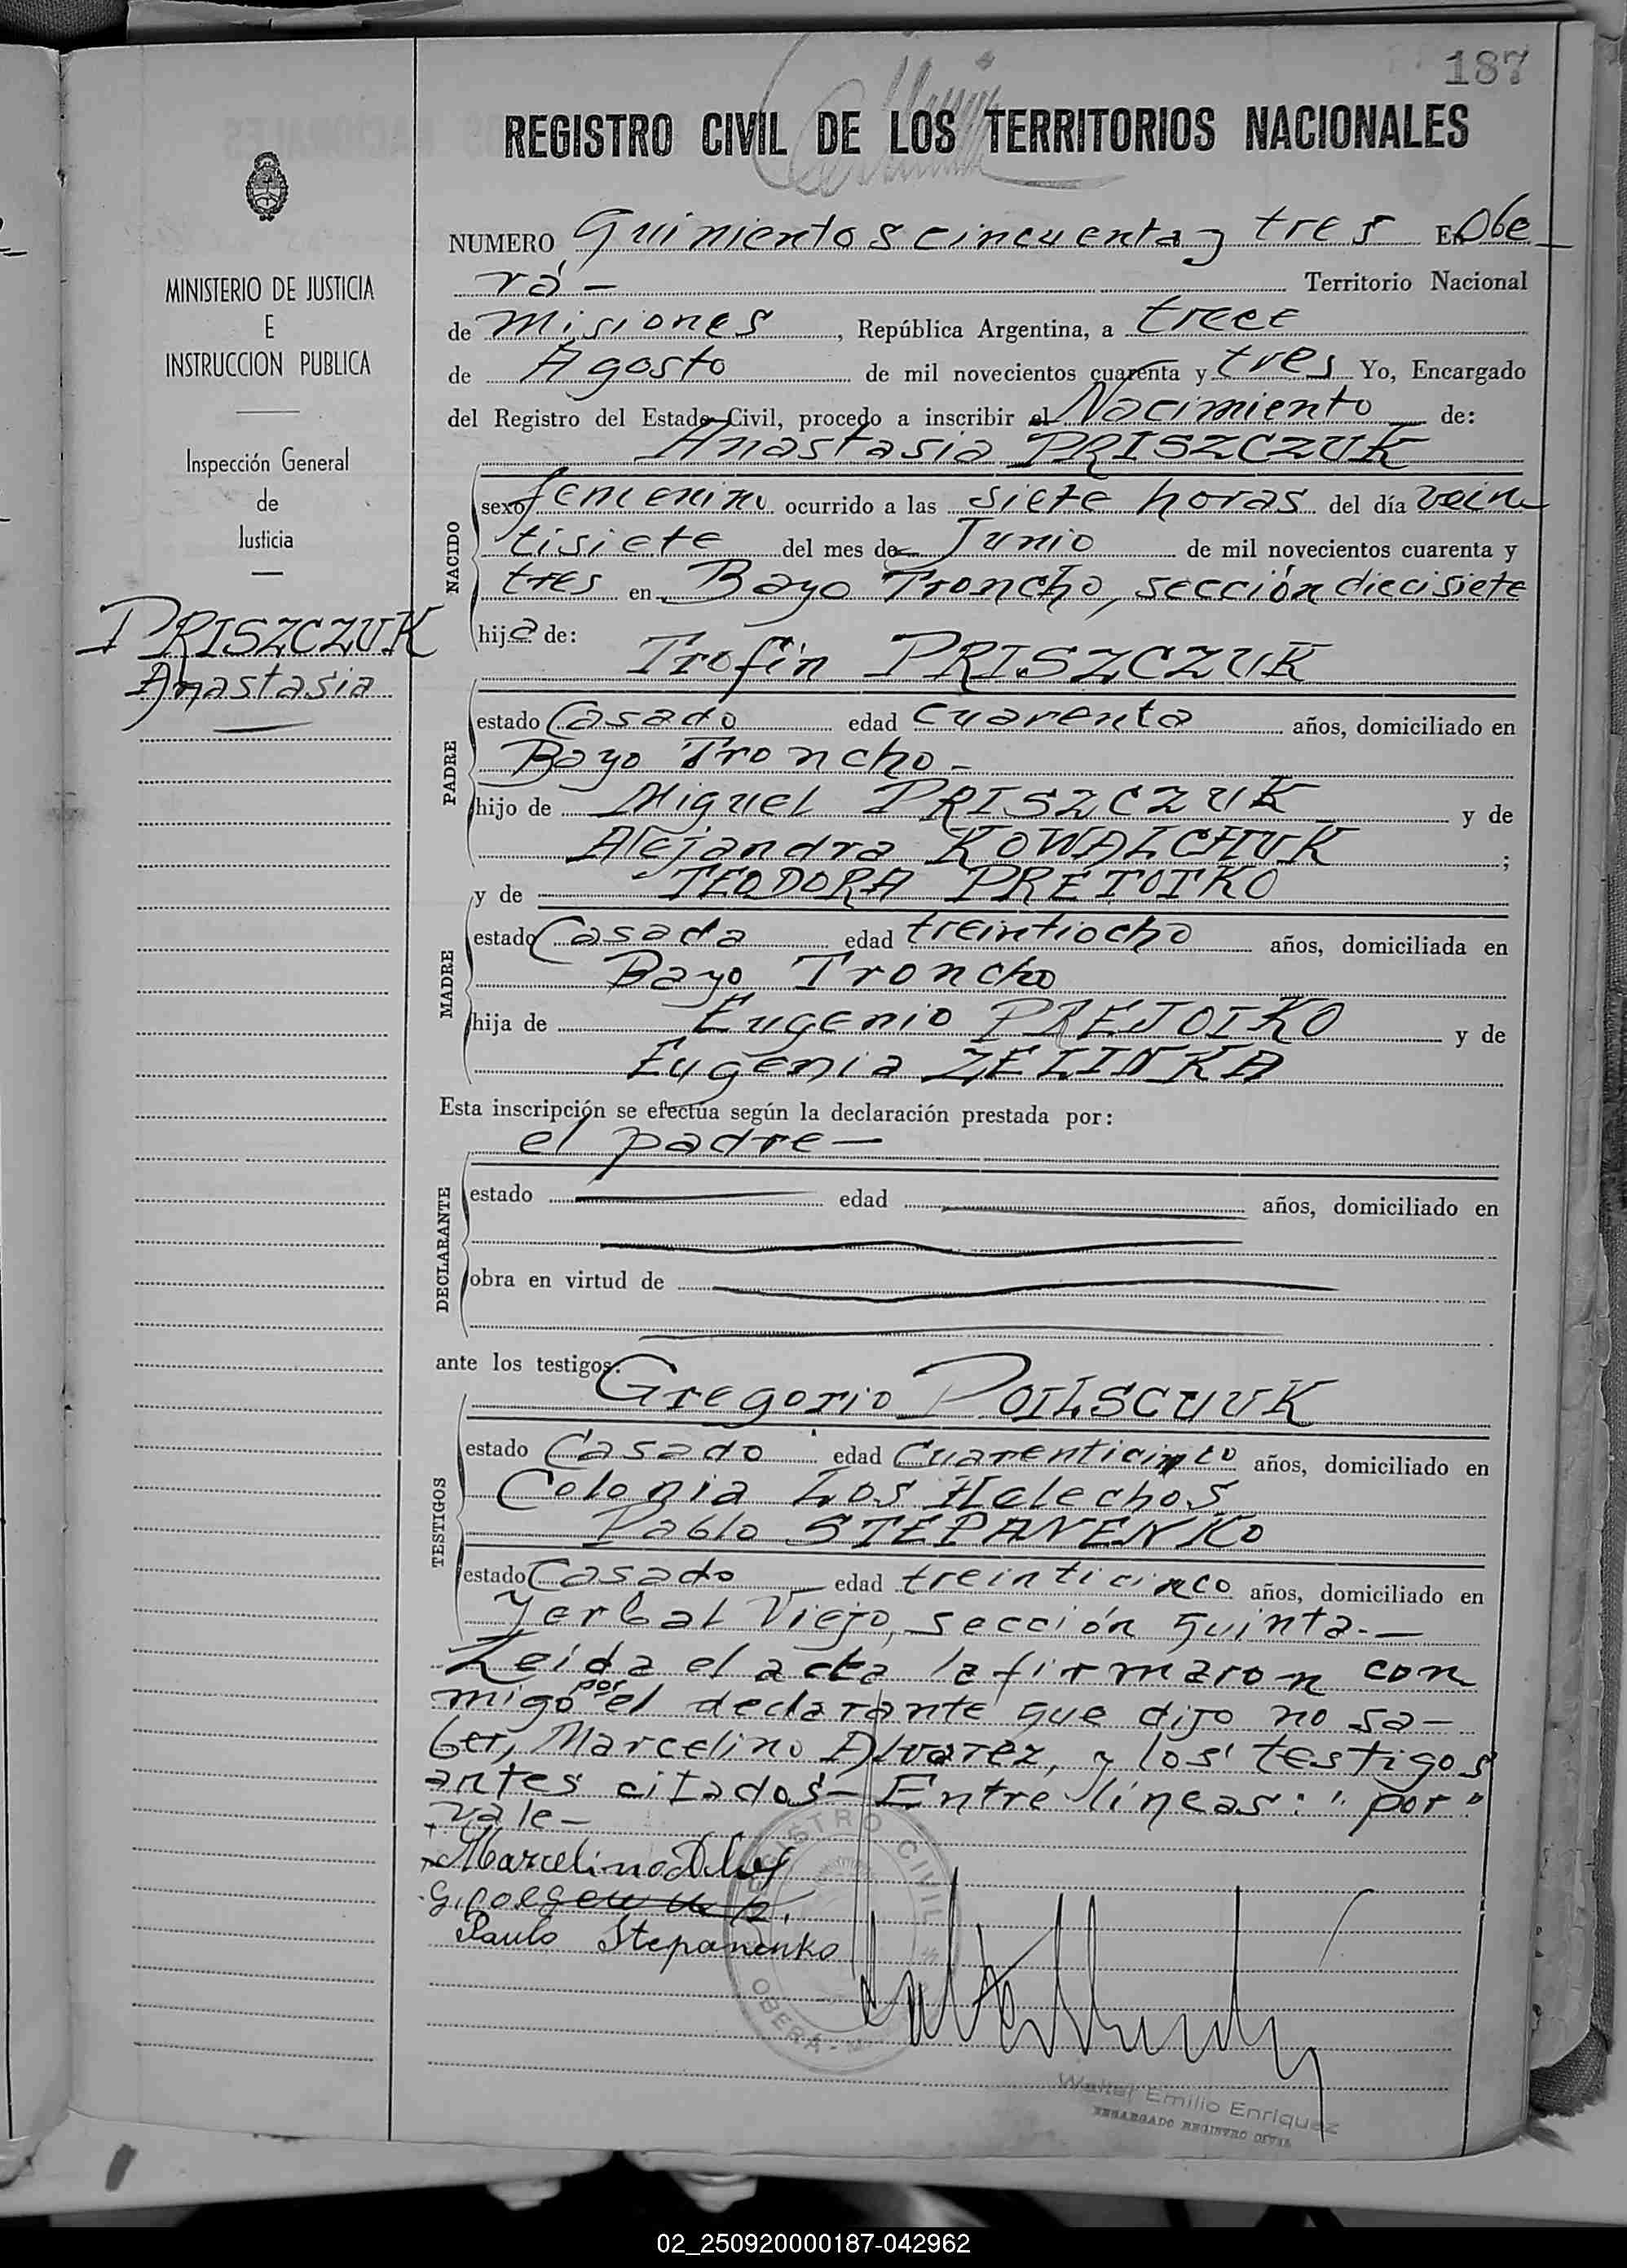 187
REGISTRO CIVIL DE LOS TERRITORIOS NACIONALES
MINISTERIO DE JUSTICIA
E
INSTRUCCION PUBLICA
Inspección General
de
Justicia
PRISZCZUK
Anastasia
NUMERO Quinientos cincuenta y tres En Obe
rá - Territorio Nacional
de Misiones, República Argentina, a trece
de Agosto de mil novecientos cuarenta y tres Yo, Encargado
del Registro del Estado Civil, procedo a inscribir el Nacimiento de:
Anastasia PRISZCZUK
NACIDO
sexo femenino ocurrido a las siete horas del día vein
tisiete del mes de Junio de mil novecientos cuarenta y
tres en Bayo Troncho, sección diecisiete
hija de:
Trofin PRISZCZUK
PADRE
estado Casado edad cuarenta años, domiciliado en
Bayo Troncho -
hijo de Miguel PRISZCZUK y de
Alejandra KOWALCHUK ;
y de TEODORA PREJOIKO
MADRE
estado Casada edad treintiocho años, domiciliada en
Bayo Troncho
hija de Eugenio PREJOIKO y de
Eugenia ZELINKA
Esta inscripción se efectúa según la declaración prestada por:
el padre -
DECLARANTE
estado edad años, domiciliado en
obra en virtud de
ante los testigos:
Gregorio POILSCUUK
TESTIGOS
estado Casado edad Cuarenticinco años, domiciliado en
Colonia Los Helechos
Pablo STEPANENKO
estado Casado edad treinticinco años, domiciliado en
Yerbal Viejo, sección quinta.-
Leída el acta la firmaron con
migo por el declarante que dijo no sa-
ber, Marcelino Alvarez, y los testigos
antes citados - Entre líneas: "por"
vale -
Marcelino
Paulo Stepanenko
REGISTRO CIVIL
OBERÁ
Walter Emilio Enriquez
ENCARGADO REGISTRO CIVIL
02_250920000187-042962